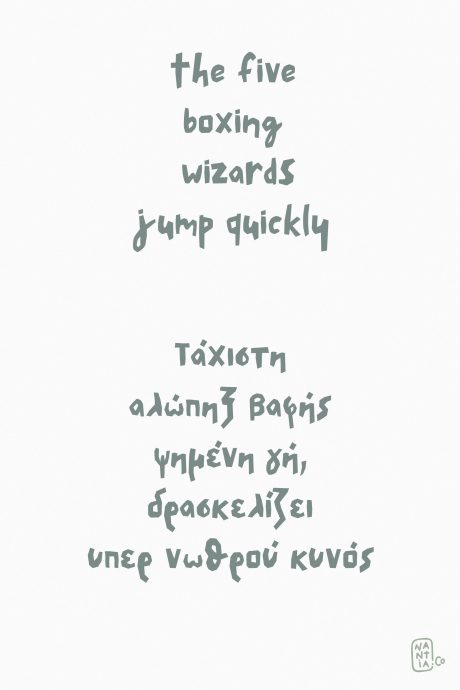 the five
boxing
wizards
jump quickly
Τάχιστη
αλώπηξ βαφής
ψημένη γή,
δρασκελίζει
υπερ νωθρού κυνός
NA
NT
IA.Co